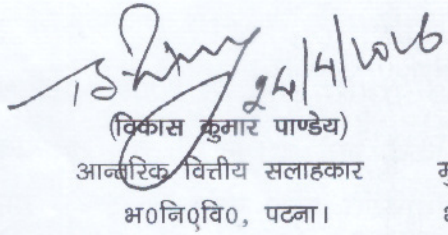 24/4/2016
(विकास कुमार पाण्डेय)
आन्तरिक वित्तीय सलाहकार
भ०नि०वि०, पटना।